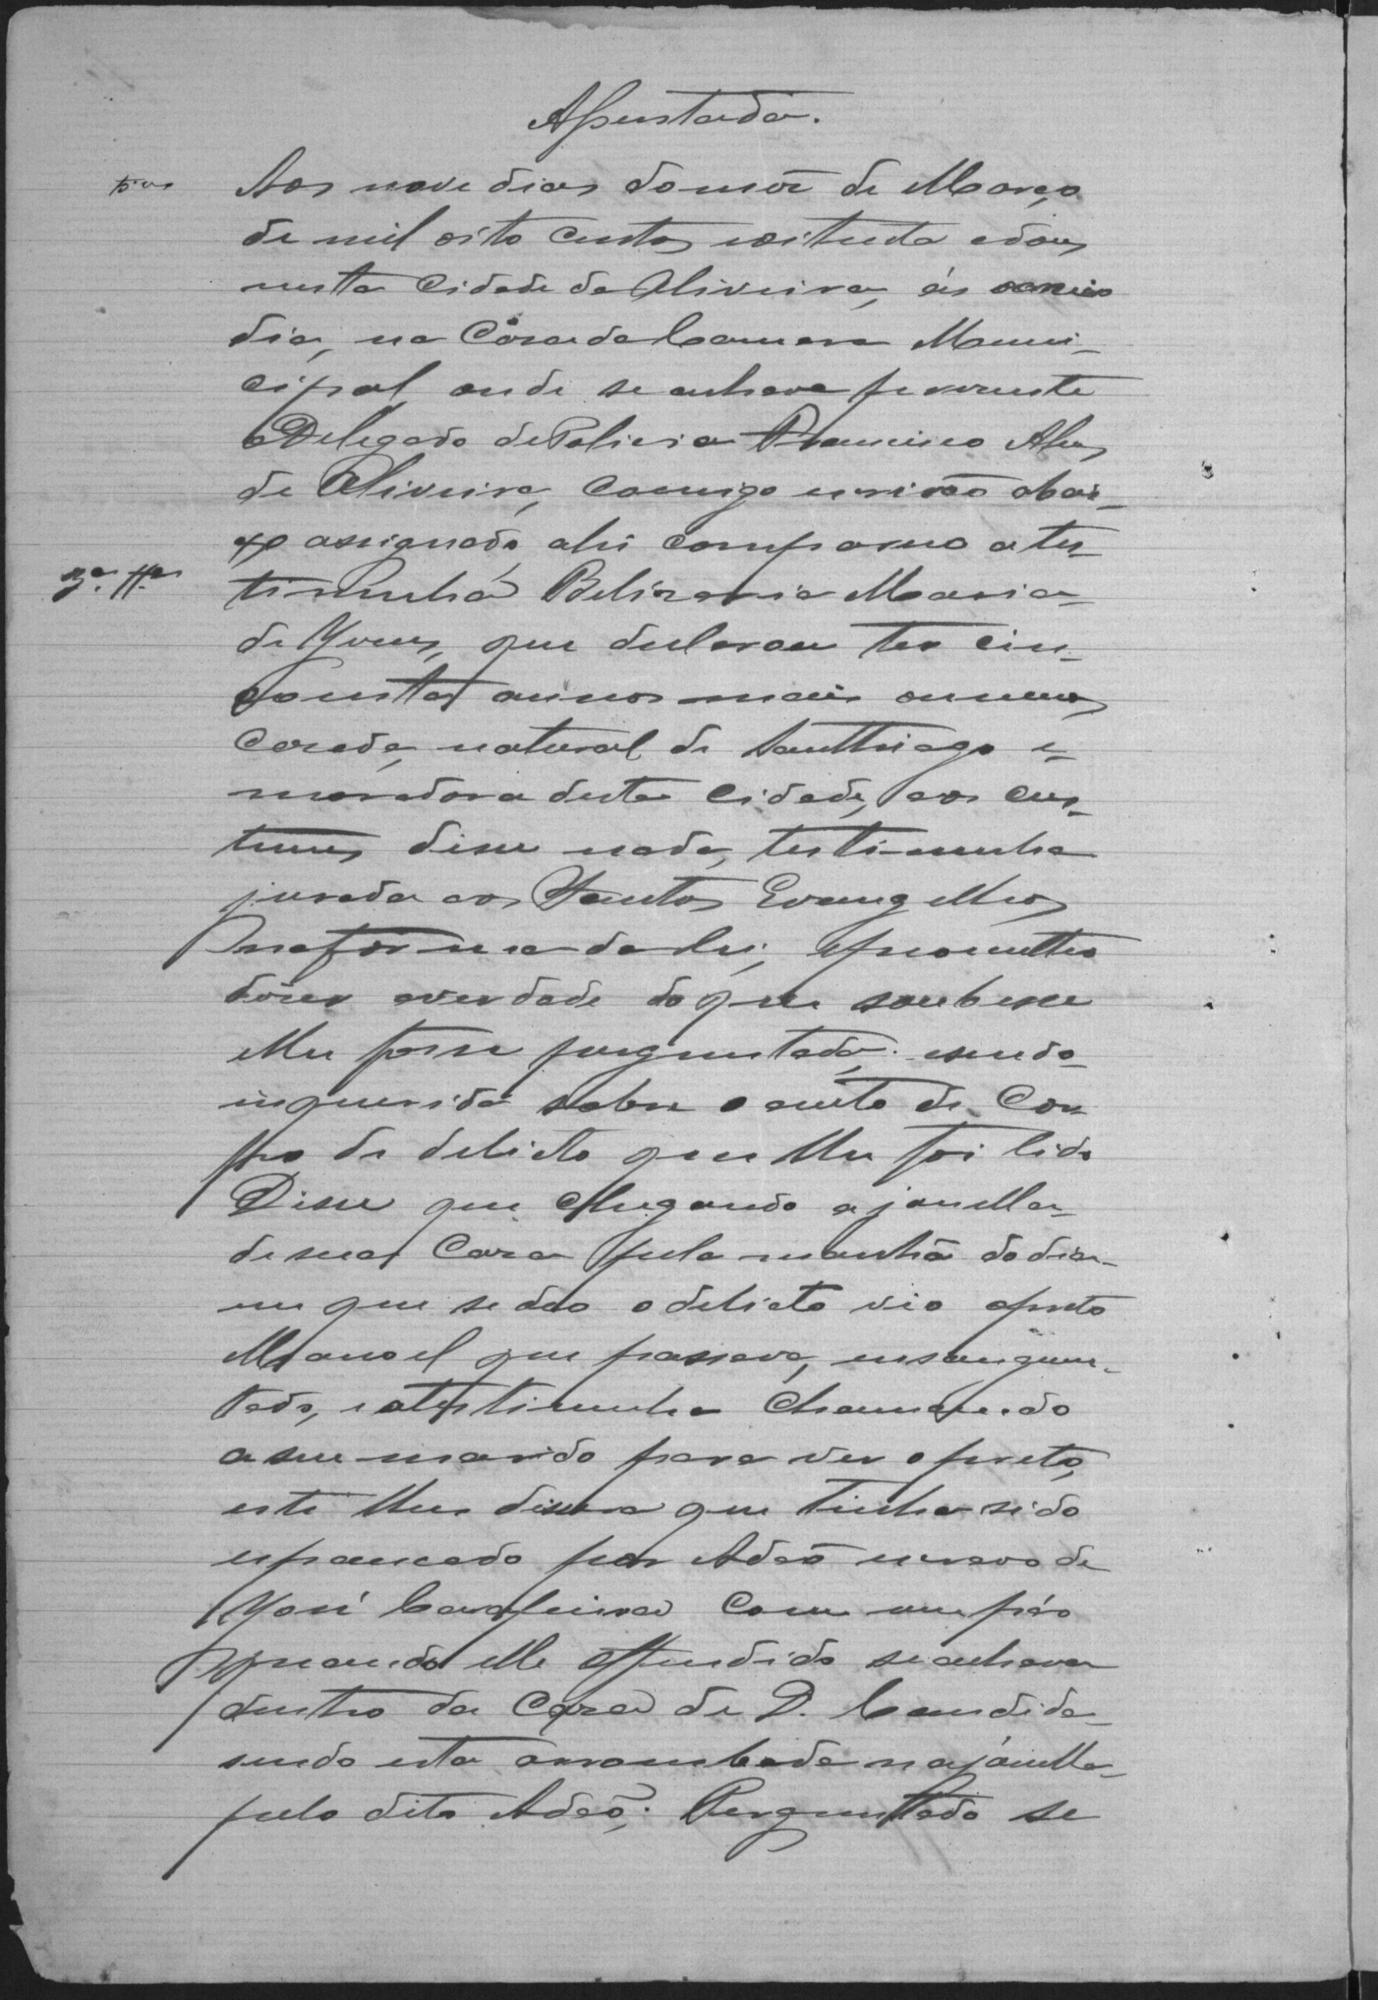 Assentada.
Aos nove dias do mez de Março
de mil oito centos eoitenta edous
nesta Cidade de Oliveira, ás
dia, na Casa da Camara Muni-
cipal, onde se achava presente
o Delegado de Policia Francisco Alves
de Oliveira, comigo escrivão abai-
xo assignado, ahi compareceo a tes-
3ª. Ttª
timunha Belizaria Maria
de Jesus, que declarou ter cin-
coenta annos mais oumenos,
Casada, natural de Santthiago e
moradora desta Cidade, aos cus-
tumes disse nada, testimunha
jurada aos Santos Evangelhos
naforma da lei, eprometteo
dizer averdade do que soubesse
elhe fosse perguntada; esendo
inquerida sobre o auto de Cor-
po de delicto que lhe foi lido
Disse que chegando a janella
desua Casa pela manhã do dia
em que se deo o delicto vio opreto
Manoel que passava, ensanguen-
tado, eatestimunha chamando
aseu marido para ver opreto,
este lhes dissera que tinha sido
espancado por Adão escravo de
José Cerqueira com um páo
quando elle offendido seachava
dentro da Casa de D. Candida
sendo esta arrombada najanella
pelo dito Adão; Perguntado se